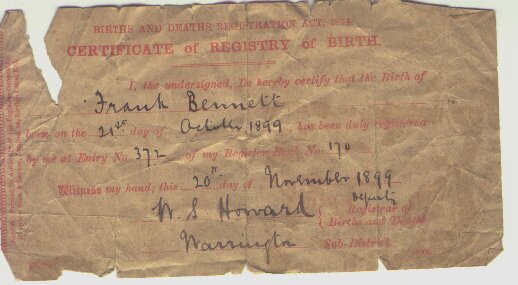 BIRTHS AND DEATHS REGISTRATION ACT, 1874.
CERTIFICATE of REGISTRY of BIRTH.
I, the undersigned, Do hereby certify that the Birth of
Frank Bennett
born on the 21st day of October 1899, has been duly registered
by me at Entry No. 372 of my Register Book No. 170
Witness my hand, this 20th day of November 1899
W. S. Howard
Deputy
Registrar of
Births and Deaths
Warrington
Sub-District.